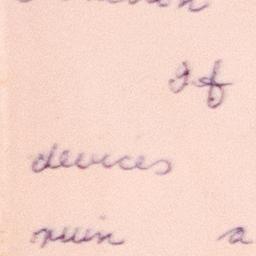 If
devices
ruin a